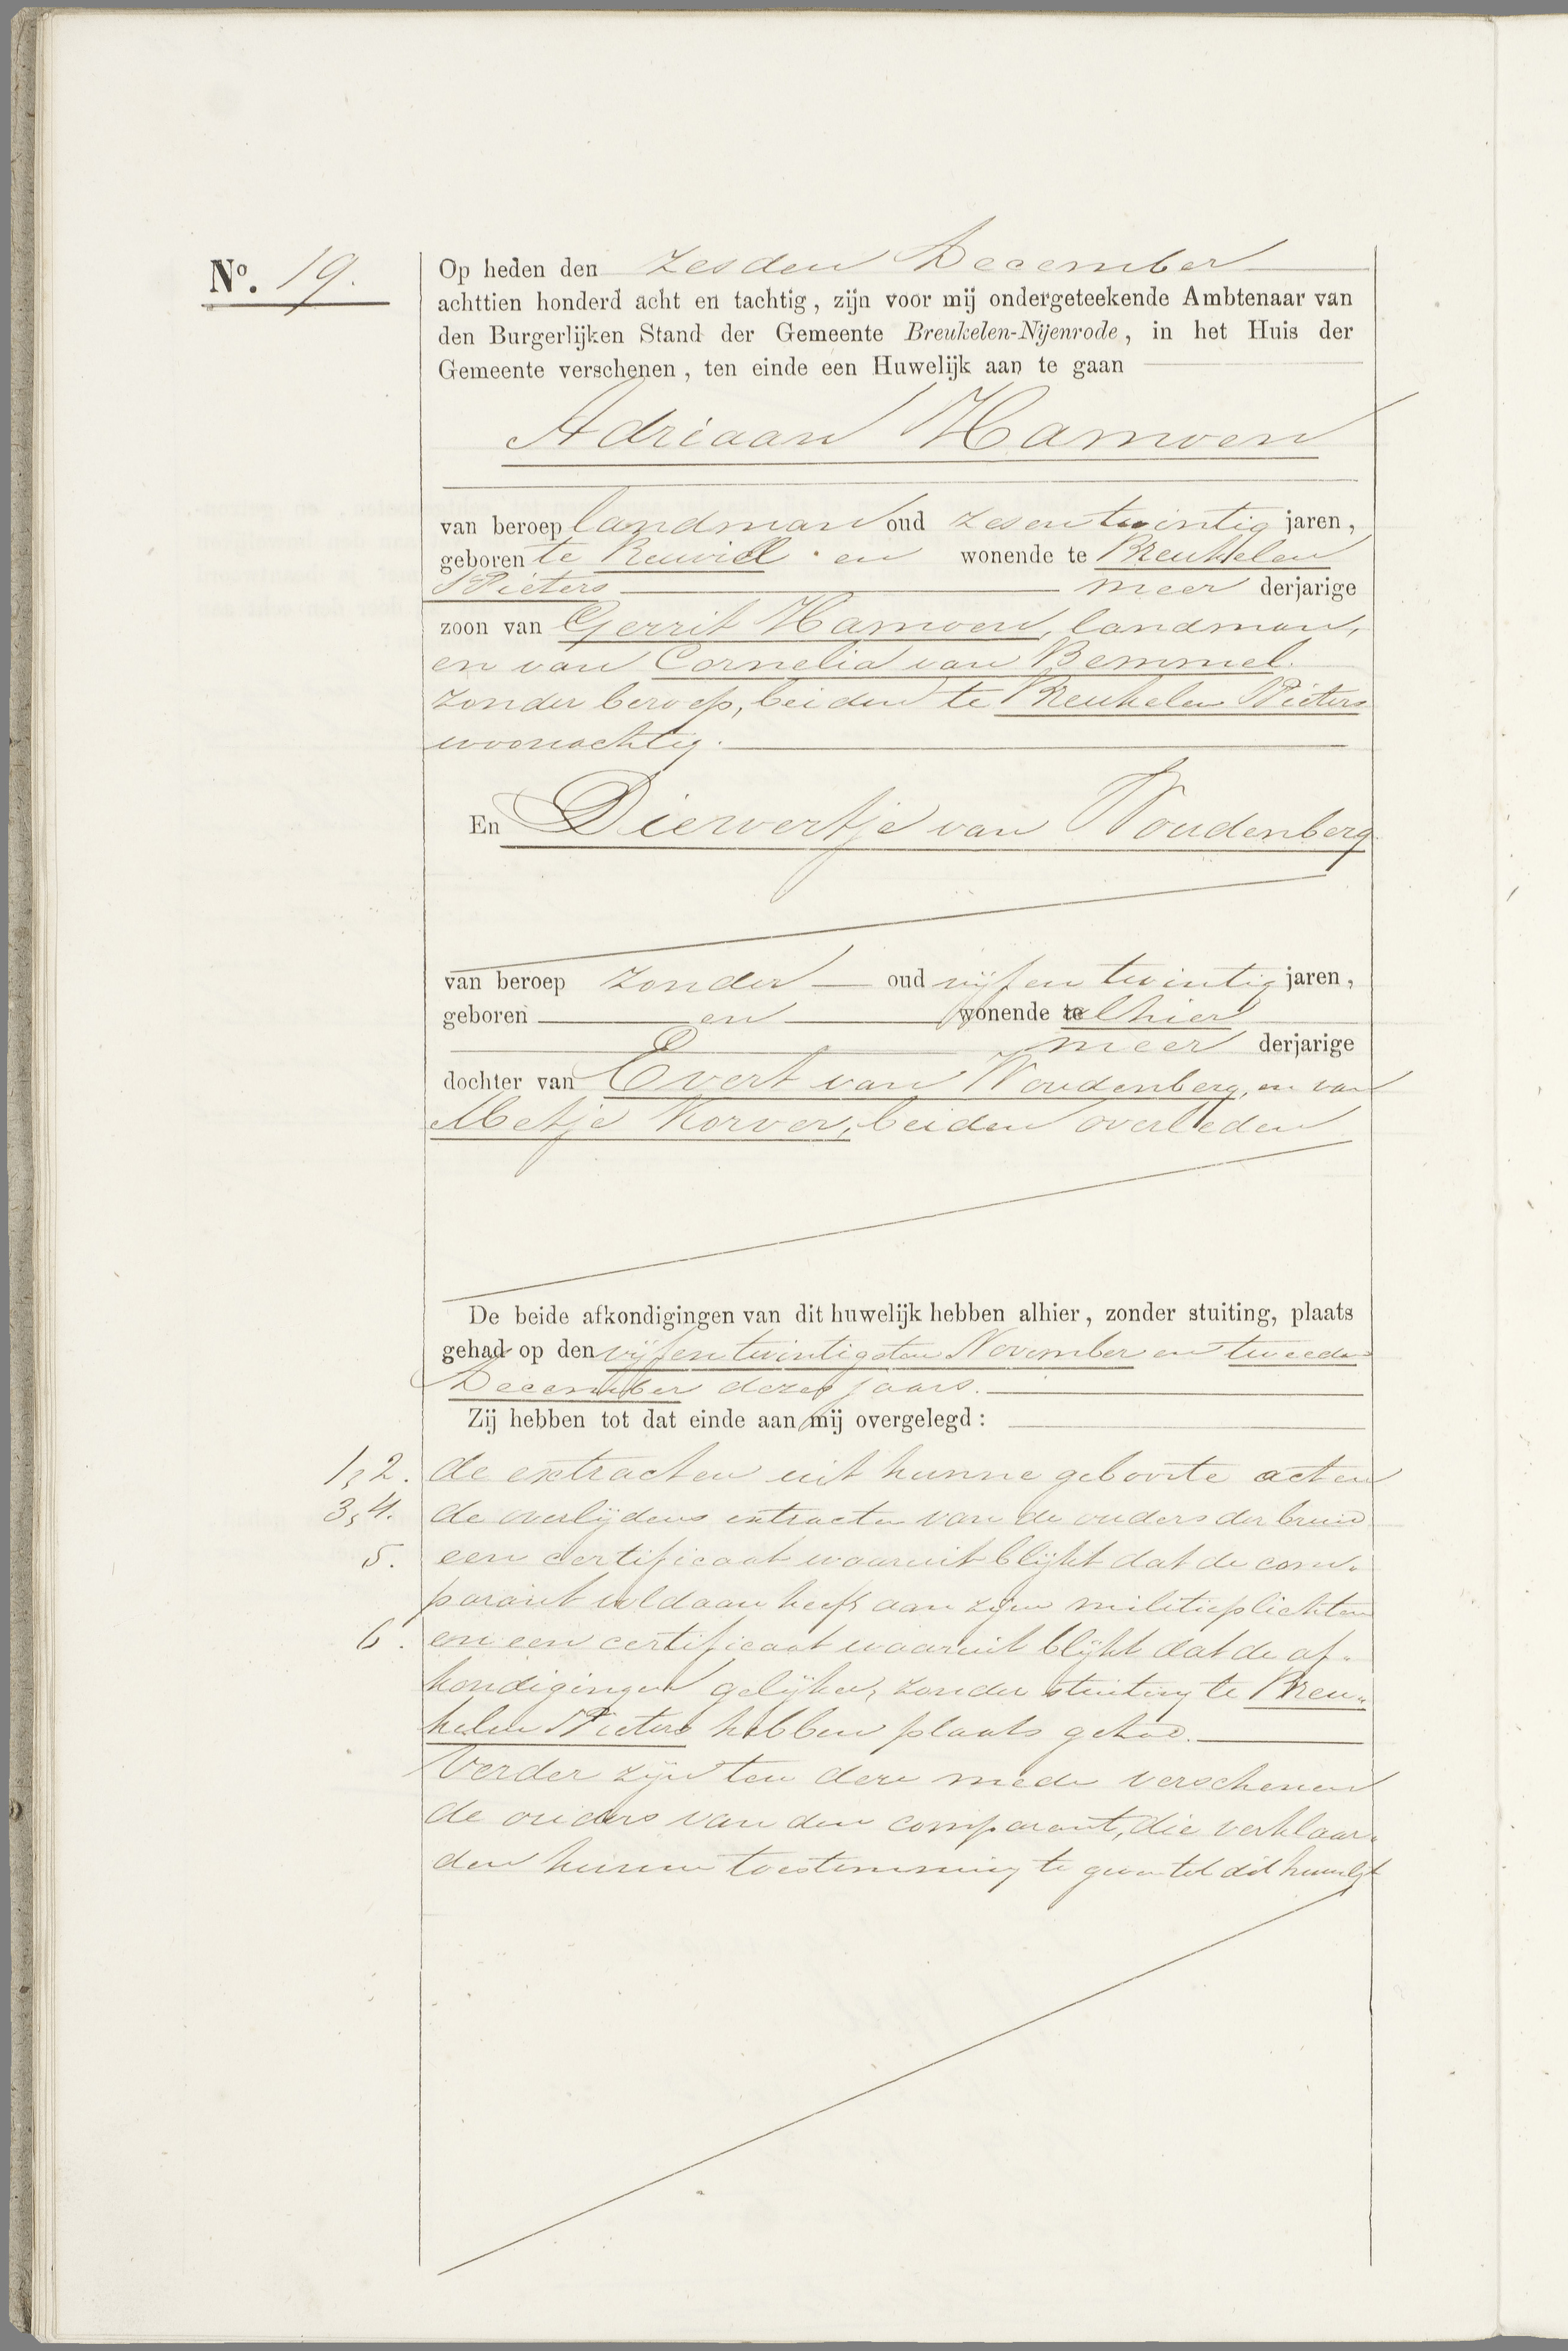 No. 19.
Op heden den zesden December
achttien honderd acht en tachtig, zijn voor mij ondergeteekende Ambtenaar van
den Burgerlijken Stand der Gemeente Breukelen-Nijenrode, in het Huis der
Gemeente verschenen, ten einde een Huwelijk aan te gaan
Adriaan Hamoen
van beroep landman oud zesentwintig jaren,
geboren te Ruwiel en wonende te Breukelen
St Pieters meer derjarige
zoon van Gerrit Hamoen, landman,
en van Cornelia van Bemmel.
zonder beroep, beiden te Breukelen St Pieters
woonachtig.
En Diewertje van Woudenberg
van beroep zonder oud vijfentwintig jaren,
geboren en wonende te alhier
meer derjarige
dochter van Evert van Woudenberg, en van
Metje Korver, beiden overleden
De beide afkondigingen van dit huwelijk hebben alhier, zonder stuiting, plaats
gehad op den vijfentwintigsten November en tweeden
December dezes jaars.
Zij hebben tot dat einde aan mij overgelegd:
1, 2. de extracten uit hunne geboorte acten
3, 4. de overlijdens extracten van de ouders der bruid
5. een certificaat waaruit blijkt dat de com-
parant voldaan heeft aan zijne militieplichten
6. en een certificaat waaruit blijkt dat de af-
kondigingen gelijke, zonder stuiting te Breu-
kelen St Pieters hebben plaats gehad.
Verder zijn ten deze mede verschenen
de ouders van den comparant, die verklaar-
den hunne toestemming te geven tot dit huwelijk